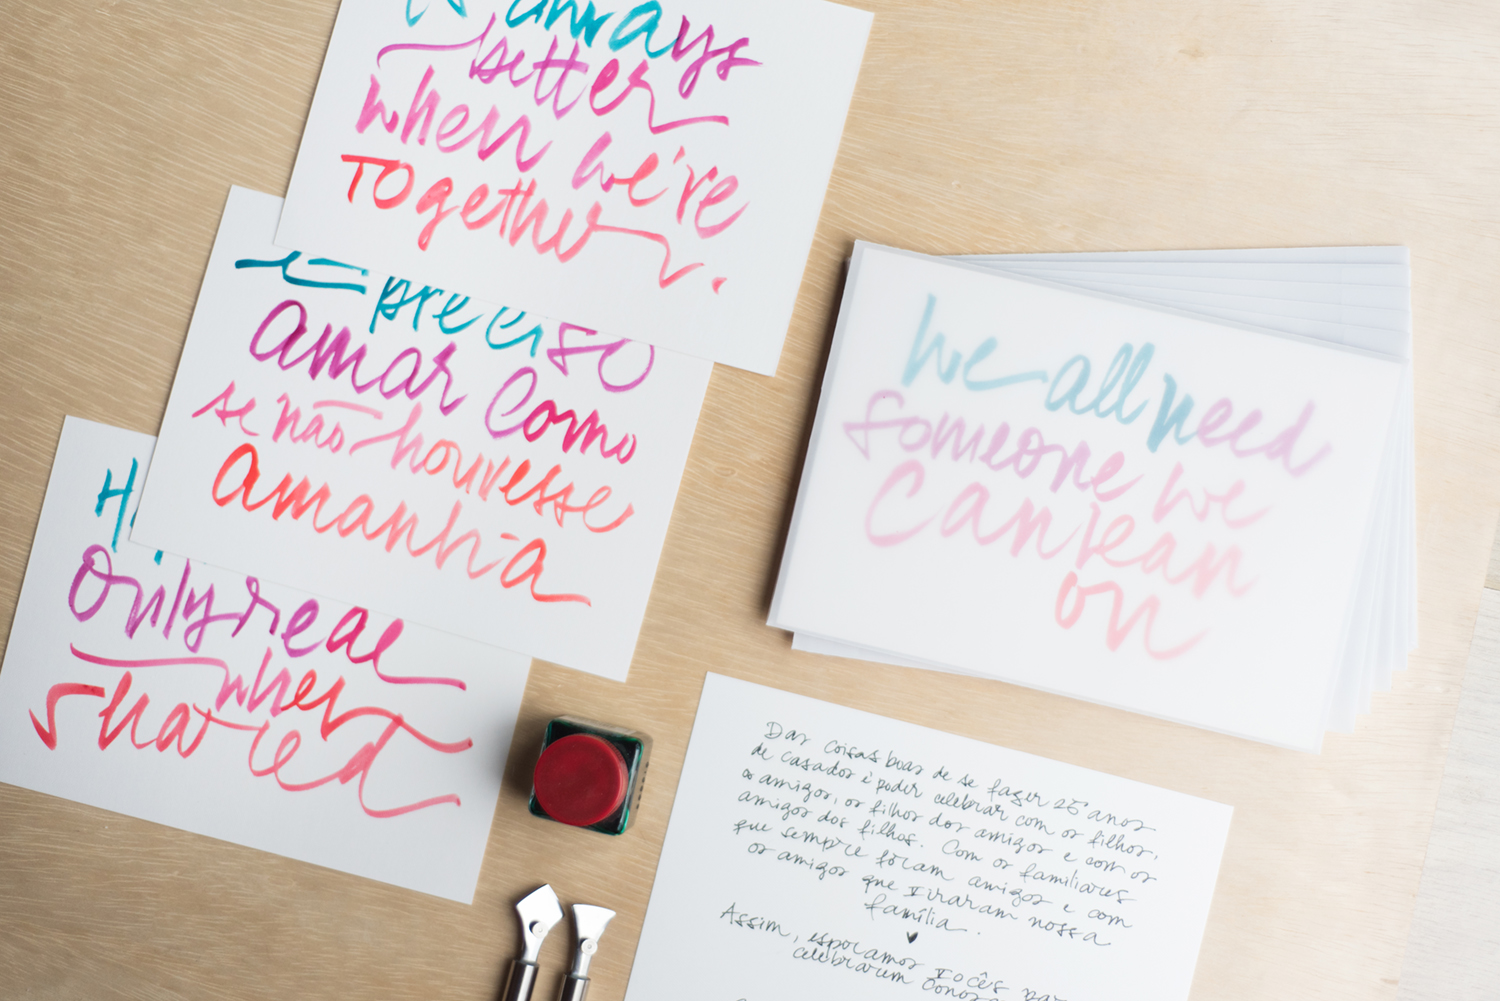 is always
better
when we're
together.
é preciso
amar como
se não houvesse
amanhã
only real
when
shared
we all need
someone we
can lean
on
Das coisas boas de se fazer 25 anos
de casados é poder celebrar com os filhos,
os amigos, os filhos dos amigos e com os
amigos dos filhos. Com os familiares
que sempre foram amigos e com
os amigos que viraram nossa
família.
Assim, esperamos vocês para
celebrarem conosco